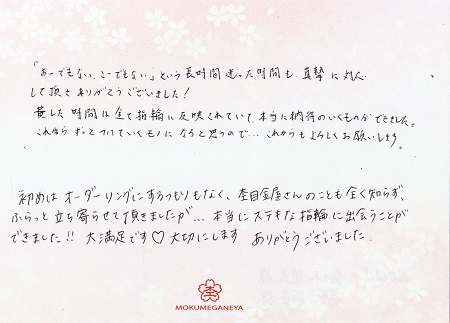 「あーでもない、こーでもない」という長時間迷った時間も、真摯に対応
して頂き ありがとうございました!
費した時間は全て指輪に反映されていて、本当に納得のいくものができました。
これから ずっとつけていくモノに なると思うので…これからもよろしくお願いします。
初めは オーダーリングにするつもりもなく、杢目金屋さんのことも全く知らず、
ふらっと立ち寄らせて頂きましたが…本当にステキな指輪に出会うことが
できました!! 大満足です♡ 大切にします ありがとうございました。
MOKUMEGANEYA